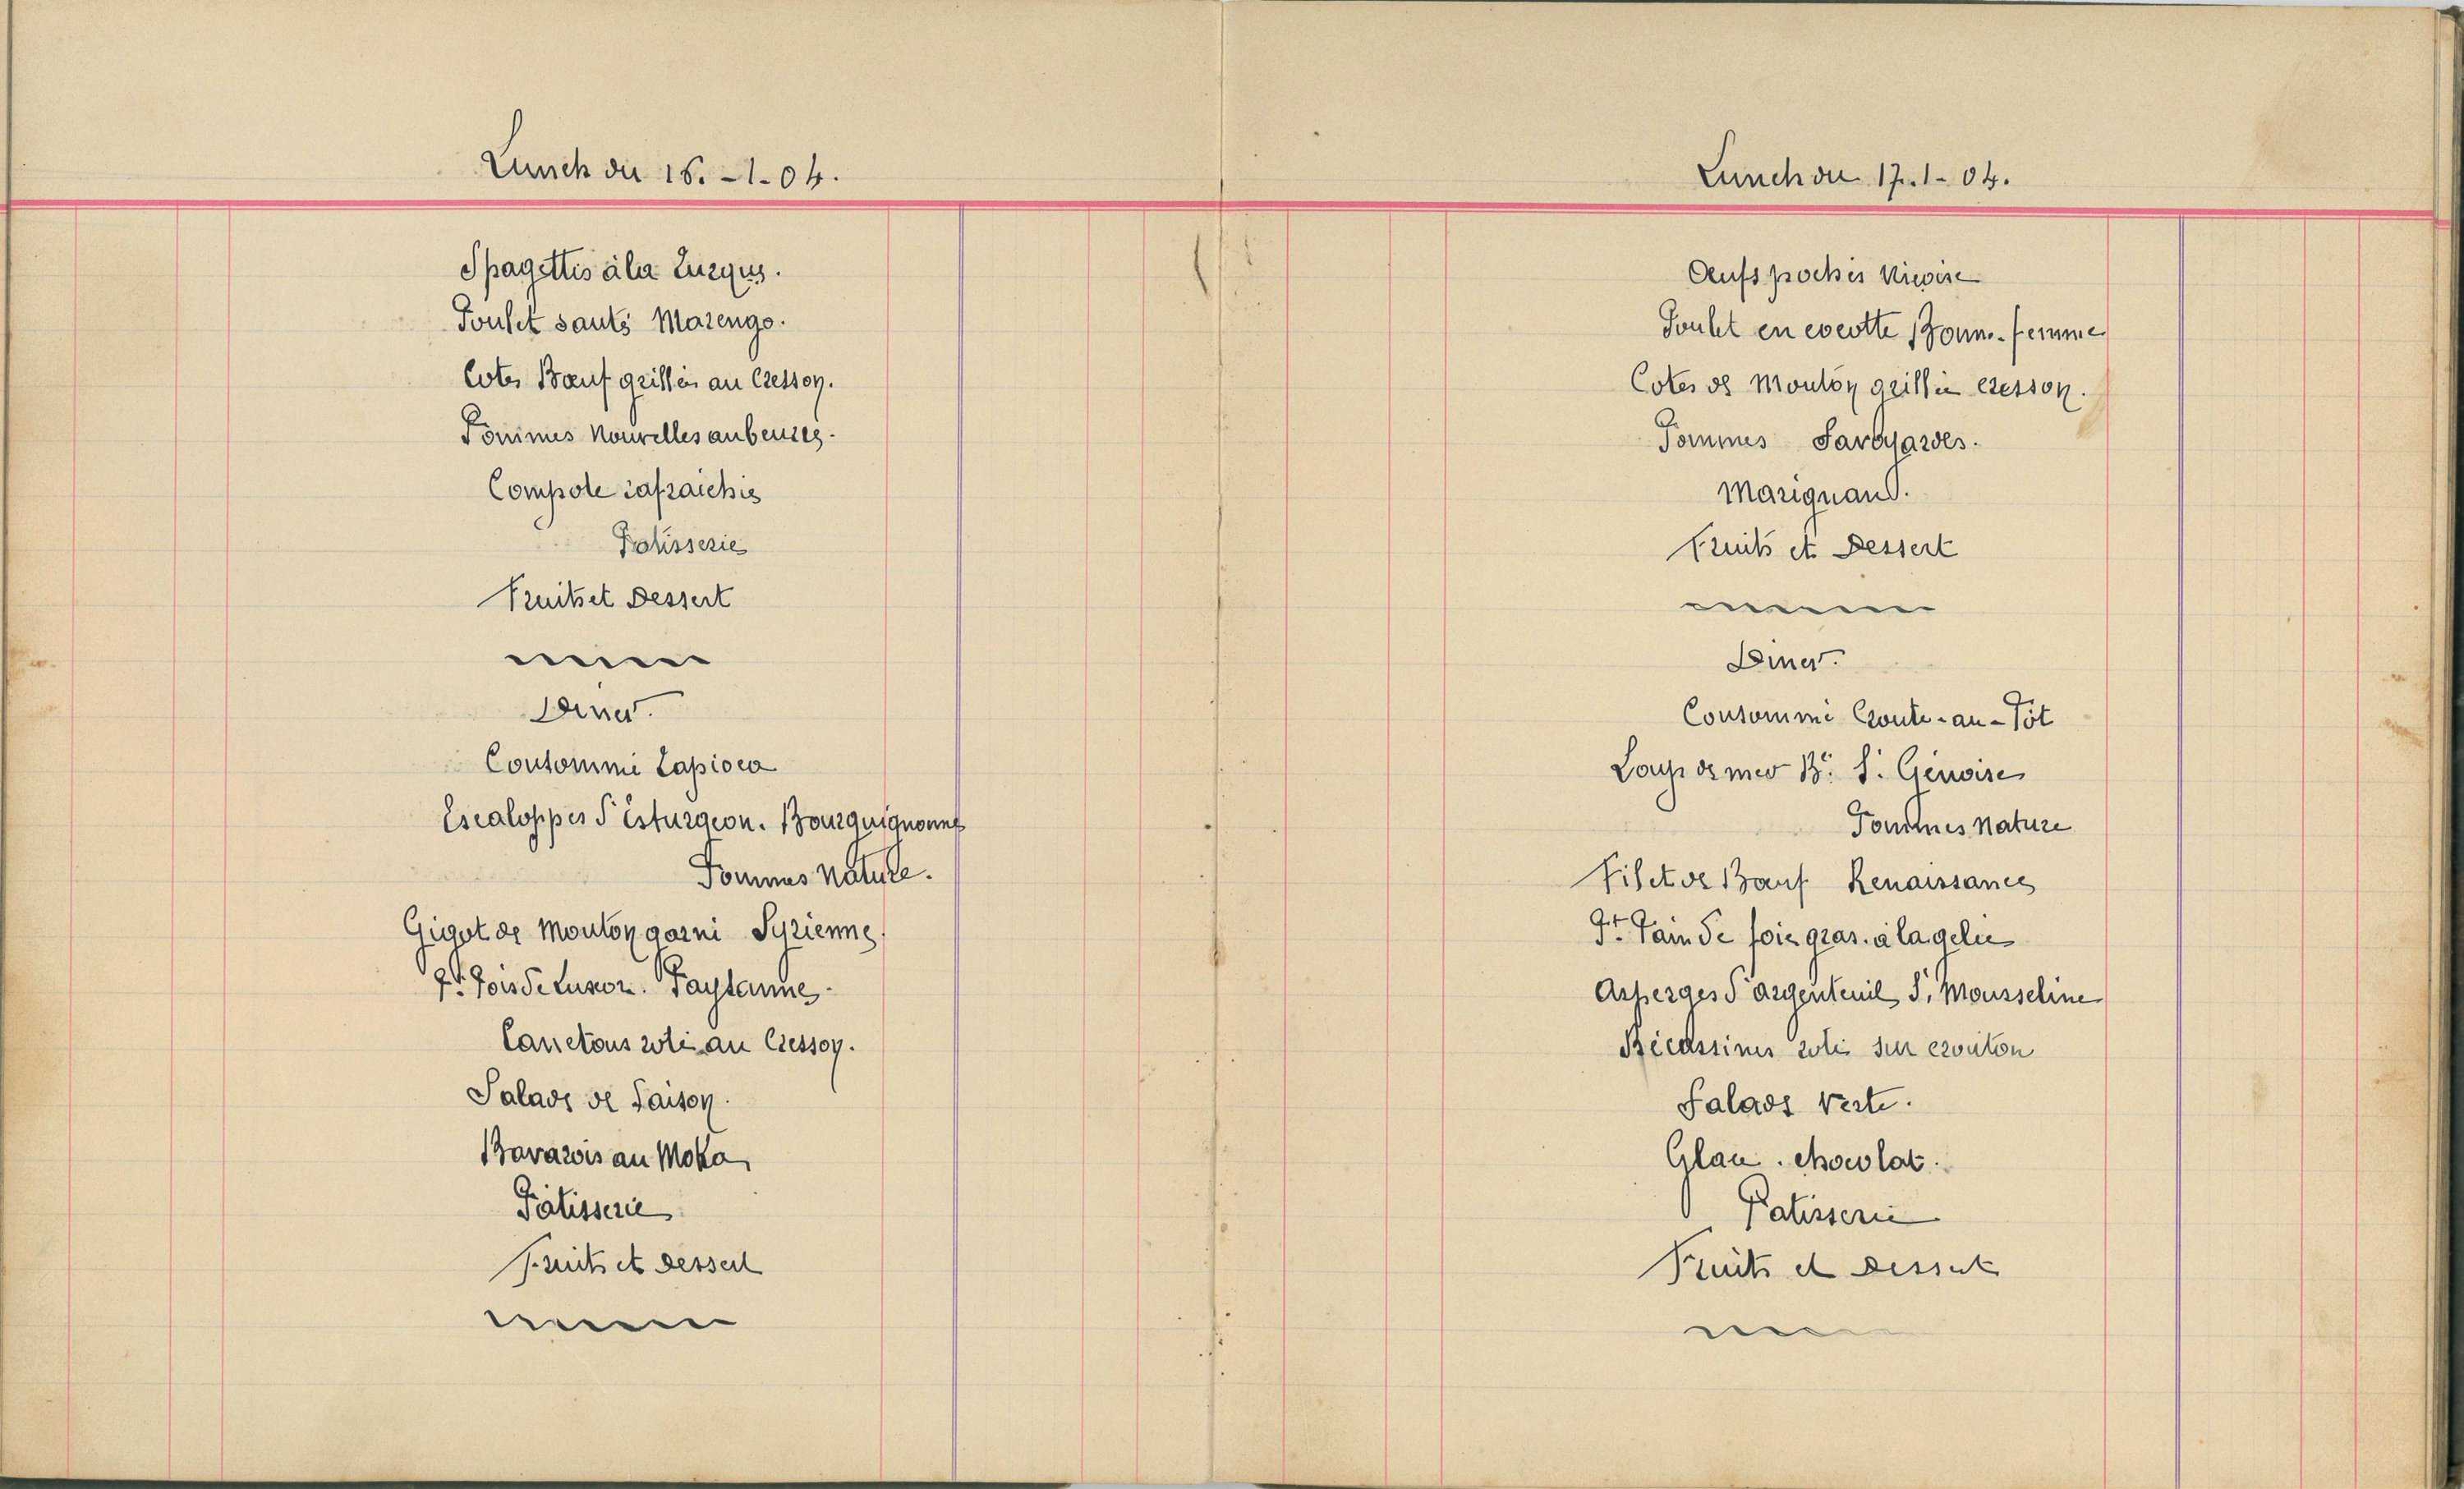 Lunch du 16.-1-04.
Spagettis à la
Poulet sauté Marengo.
Cotes Bœuf grillées au Cresson.
Pommes Nouvelles au beurre.
Compote rafraichie
Patisserie
Fruits et Dessert
Diner.
Consommé Tapioca
Escaloppes d'Esturgeon. Bourguignonne
Pommes Nature.
Gigot de Mouton garni Syrienne
Pts. Pois de Luxor. Paysanne.
Canetons roti au Cresson.
Salade de Saison.
Bavarois au Moka
Pâtisserie
Fruits et Dessert
Lunch du 17.1-04.
Œufs pochés Niçoise
Poulet en cocotte Bonne-femme
Cotes de Mouton grillée cresson.
Pommes Savoyardes.
Marignand.
Fruits et Dessert
Diner.
Consommé Croute-au-Pôt
Loup de mer Bt. S. Génoise
Pommes Nature
Filet de Bœuf Renaissance
Pt. Pain de foie gras. à la gelée
Asperges d'argenteuil S. Mousseline
Bécassines rotis sur crouton
Salade Verte.
Glace. chocolat.
Patisserie
Fruits et Dessert